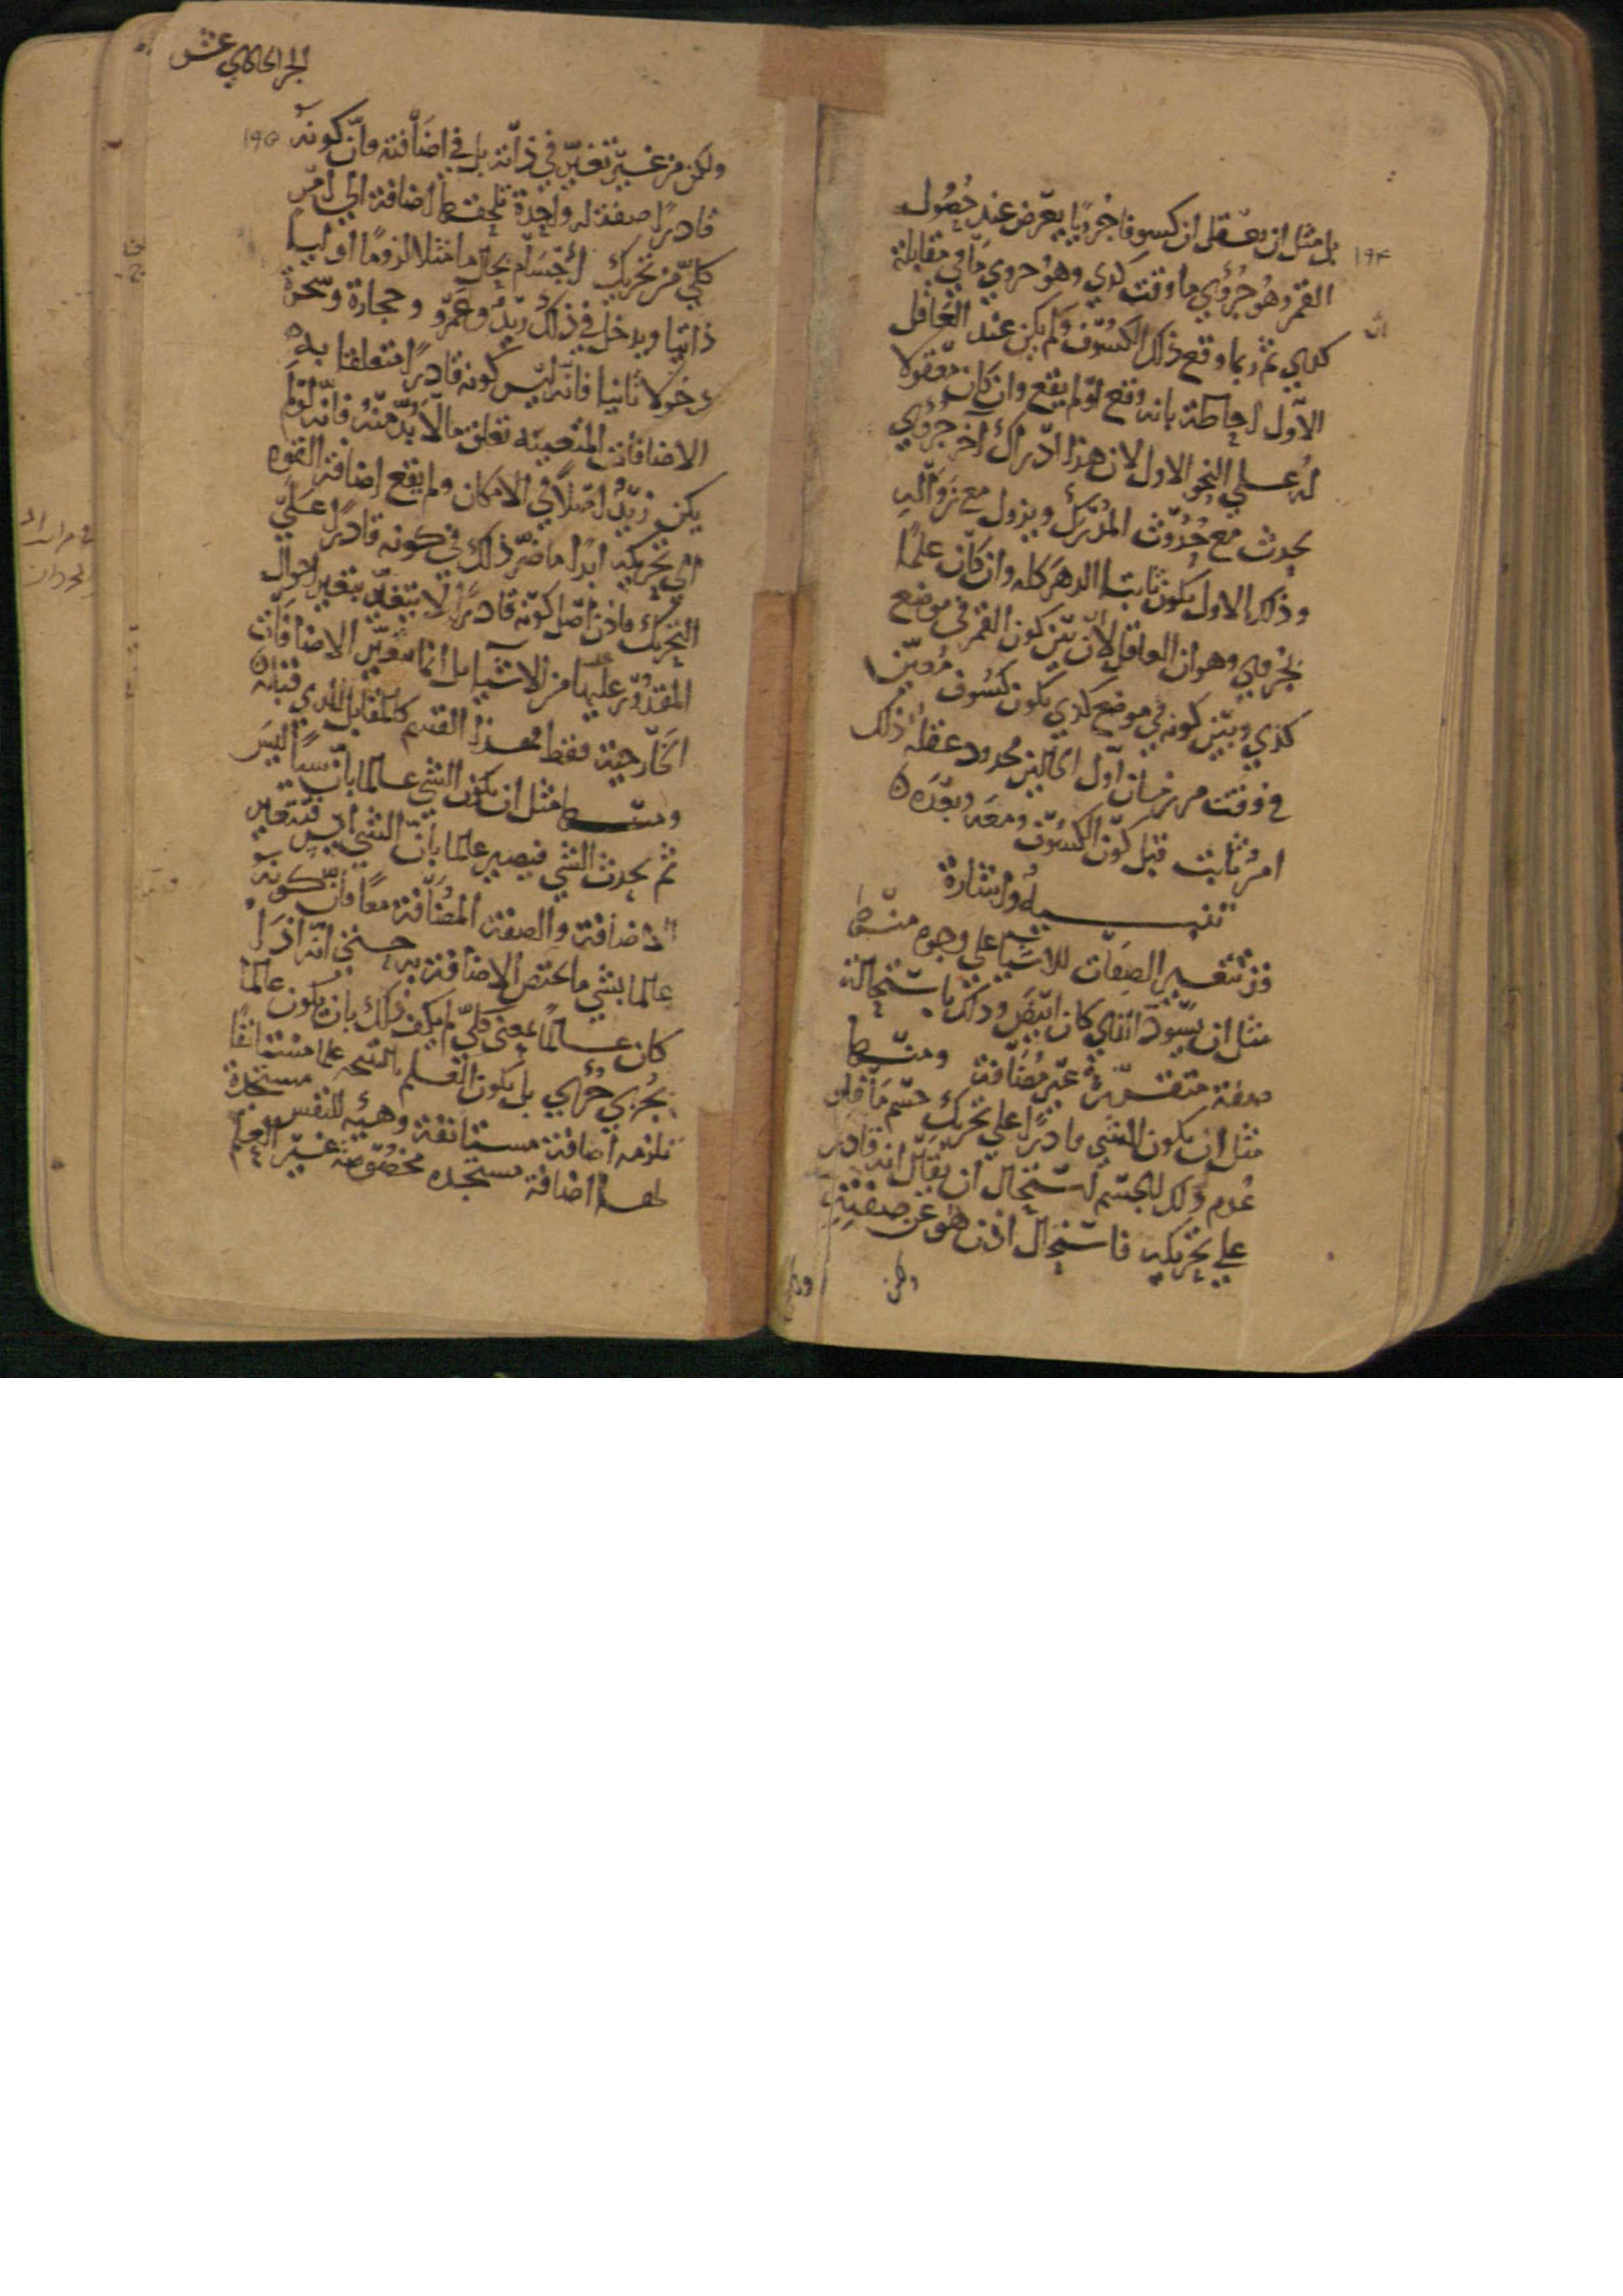 ١٩٤
بل مثل ان يعقل ان كسوفا جزويا يعرض عند حصول
القمر وهو جزوي ما وقت كدي وهو جزوي ما في مقابلة
كدي ثم ربما وقع ذلك الكسوف ولم يكن عند العاقل
الاول احاطة بانه وقع او لم يقع وان كان معقولا
له على النحو الاول لان هذا ادراك اخر جزوي
يحدث مع حدوث المدرك ويزول مع زواله
وذلك الاول يكون ثابتا الدهر كله وان كان علما
بجزوي وهو ان العاقل لان بين كون القمر في موضع
كدي وبين كونه في موضع كدي يكون كسوف معين
في وقت من زمان اول الحالين محدود عقله ذلك
امر ثابت قبل كون الكسوف ومعه وبعده
تنبيه واشارة
قد تتغير الصفات للاشيا على وجوه منها
مثل ان يسود الذي كان ابيض وذلك باستحالة
صفة متقررة غير مضافة ومنها
مثل ان يكون الشي قادرا على تحريك جسم ما فلو
عدم ذلك الجسم استحال ان يقال انه قادر
على تحريكه فاستحال اذن هو عن صفته
ولكن
الجز الحادي عشر
١٩٥
ولكن من غير تغير في ذاته بل في اضافته فان كونه
قادرا صفة له واحدة تلحقها اضافة الى امر
كلي من تحريك اجسام بحال ما مثلا لزوما اوليا
ذاتيا ويدخل في ذلك زيد وعمرو وحجارة وشجرة
دخولا ثانيا فانه ليس كونه قادرا متعلقا به
الاضافات المتعينة تعلق ما لا بد منه فانه لو لم
يكن زيد اصلا في الامكان ولم يقع اضافة القوة
الى تحريكه ابدا ما ضر ذلك في كونه قادرا على
التحريك فاذن اصل كونه قادرا لا يتغير بتغير احوال
المقدور عليها من الاشيا بل انما يتغير الاضافات
الخارجية فقط فهذا القسم كالمقابل للذي قبله
ومنها مثل ان يكون الشي عالما بان شيا ليس
ثم يحدث الشي فيصير عالما بان الشي ايس فتتغير
الاضافة والصفة المضافة معا فان كونه
عالما بشي ما يختص الاضافة به حتى انه اذا
كان عالما بمعنى كلي لم يكف ذلك بان يكون عالما
بجزوي جزوي بل يكون العلم بالنتيجة علما مستانفا
تلزمه اضافة مستانفة وهيئة للنفس مستجدة
لها اضافة مستجدة مخصوصة غير العلم